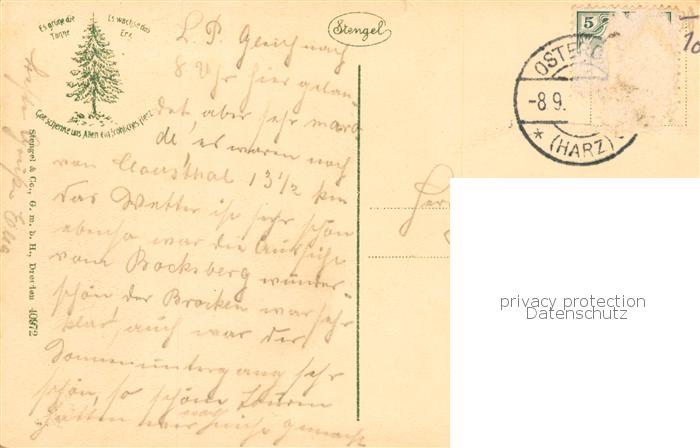 Es grüne die Tanne
Es wachse das Erz
Gott schenke uns Allen ein fröhliches Herz
Stengel
5
OSTERO
-8.9.
* (HARZ)
10
L. P. Gleich nach
8 Uhr hier gelan-
det, aber sehr maro
de, es waren noch
von Clausthal 13 1/2 km
das Wetter ist sehr schön
ebenso war die Aussicht
vom Bocksberg wunder-
schön der Brocken war sehr
klar, auch war der
Sonnenuntergang sehr
schön, so schöne Touren
hatten wir noch nicht gemacht
Stengel & Co., G. m. b. H., Dresden 40972
privacy protection
Datenschutz